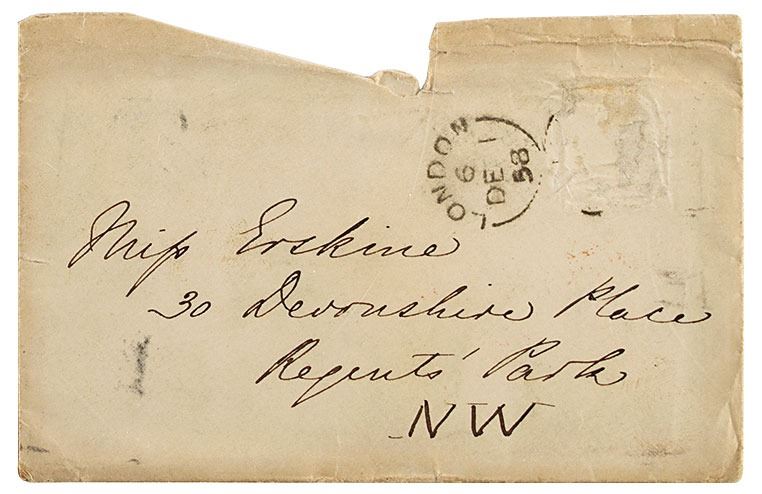 LONDON
6
DE 1
58
Miss Erskine
30 Devonshire Place
Regents' Park
NW